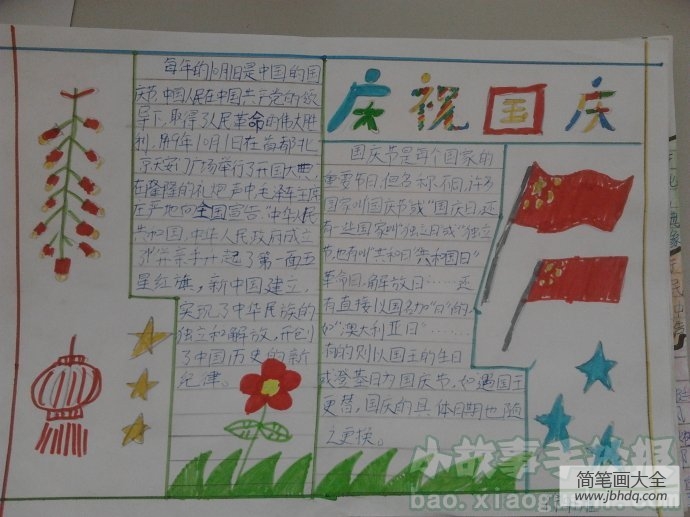 庆祝国庆
每年的10月1日是中国的国
庆节,中国人民在中国共产党的领
导下,取得了人民革命的伟大胜
利,1949年10月1日在首都北
京天安门广场举行了开国大典,
在隆隆的礼炮声中,毛泽东主席
庄严地向全国宣告"中华人民
共和国,中华人民政府成立
了"并亲手升起了第一面五
星红旗,新中国建立,
实现了中华民族的
独立和解放,开创
了中国历史的新
纪津。
国庆节是每个国家的
重要节日,但名称不同,许多
国家叫国庆节或"国庆日,还
有一些国家叫"独立日或"独立
节,也有叫"共和日"共和国日"
革命日,解放日……还
有直接以国名加"日"的
如"澳大利亚日"………
有的则以国王的生日
或登基日为国庆节,如遇国王
更替,国庆的具体日期也随
之更换。
小故事手抄报
bao.xiaogushi.com
简笔画大全
www.jbhdq.com